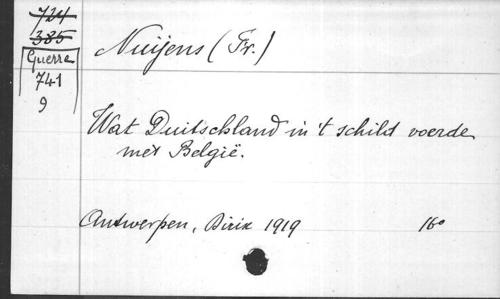 724
385
Guerre
741
9
Nuijens (Fr.)
Wat Duitschland in 't schild voerde
met België.
Antwerpen, Dirix 1919 16°